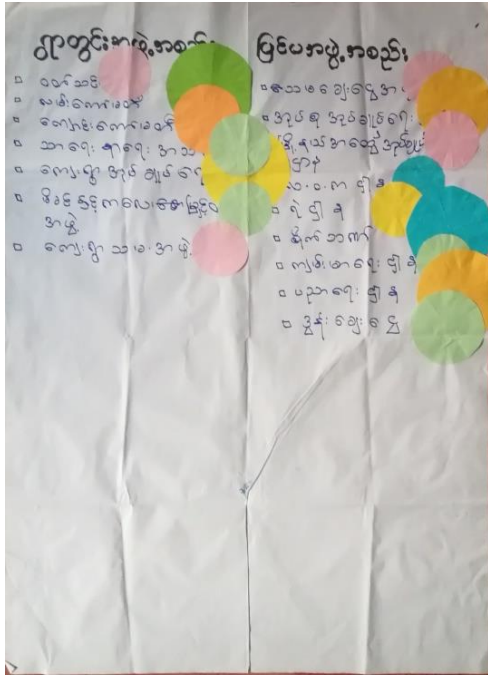 ရွာတွင်းအဖွဲ့အစည်း
ဝတ်သင်
လမ်းကော်မတီ
ကျောင်းကော်မတီ
သာရေး နာရေး အသ
ကျေးရွာ အုပ်ချုပ်ရေ
မိခင်နှင့်ကလေးစောင့်
အဖွဲ့
ကျေးရွာ သမ အဖွဲ့
ပြင်ပအဖွဲ့အစည်း
သမချေးငွေအ
အုပ်စု အုပ်ချုပ်ရေး
မြို့နယ်အထွေထွေအုပ်ချုပ်
ဌာန
ဌာန
ရဲဌာန
စိုက်ဘဏ်
ကျန်းမာရေးဌာန
ပညာရေးဌာန
ဒွန်းချေးငွေ